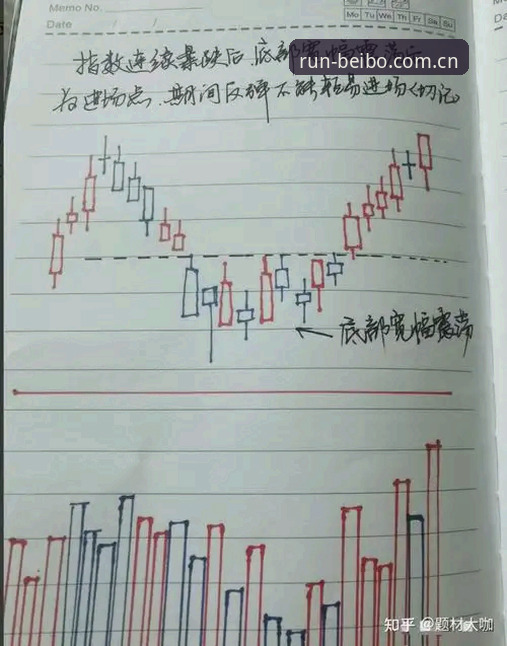 Memo No.
Mo Tu We Th Fr Sa Su
Date / /
指数连续暴跌后底部宽幅震荡后
run-beibo.com.cn
为进场点.期间反弹不能轻易进场(切记)
底部宽幅震荡
知乎 @题材大咖